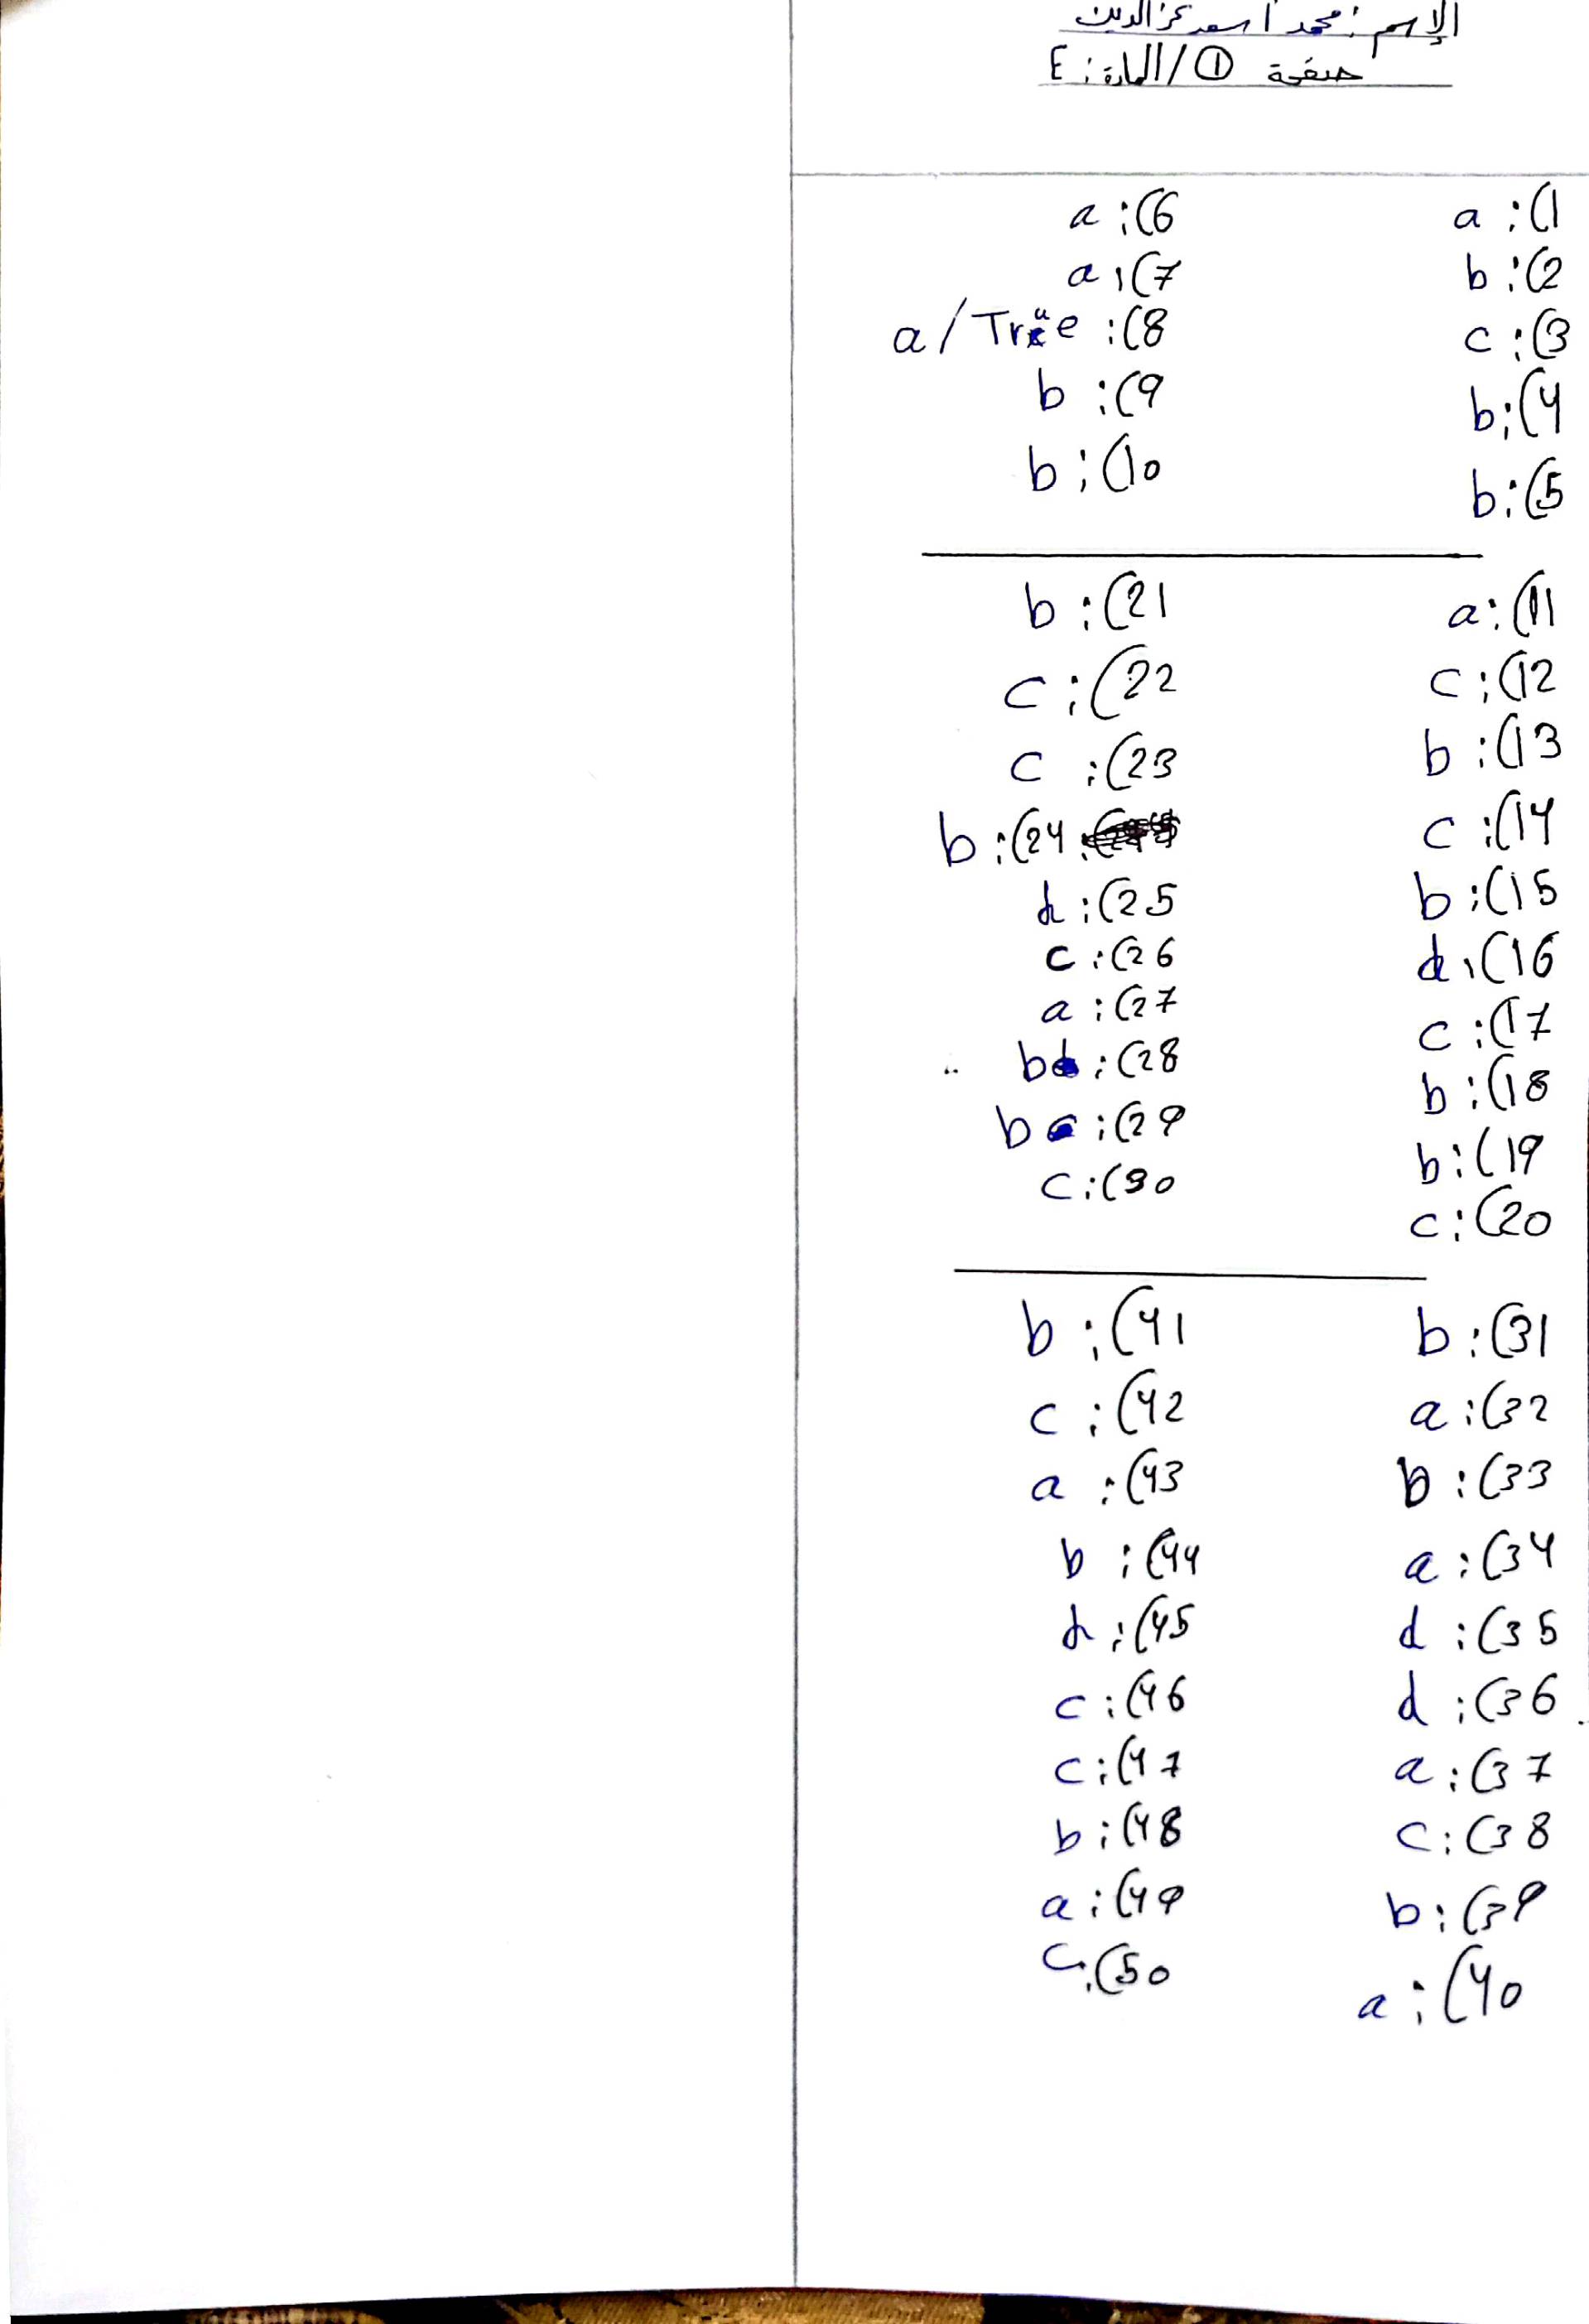 الإسم : محمد أسعد عز الدين
صفحة ① / المادة : E
1) : a
2) : b
3) : c
4) : b
5) : b
6) : a
7) : a
8) : a / True
9) : b
10) : b
11) : a
12) : c
13) : b
14) : c
15) : b
16) : d
17) : c
18) : b
19) : b
20) : c
21) : b
22) : c
23) : c
24) : b
25) : d
26) : c
27) : a
28) : b
29) : b
30) : c
31) : b
32) : a
33) : b
34) : a
35) : d
36) : d
37) : a
38) : c
39) : b
40) : a
41) : b
42) : c
43) : a
44) : b
45) : d
46) : c
47) : c
48) : b
49) : a
50) : c